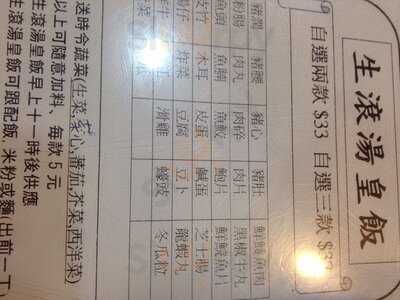 生滾湯皇飯
自選兩款 $33 自選三款
豬潤 豬腰 豬心 豬肚
粉腸 肉丸 肉碎 肉片 黑椒牛丸
魚頭 魚腩
皮竹 木耳 皮蛋 鹹蛋 芝士腸
炸菜 豆腐 豆卜 龍蝦丸
滑雞 蠔豉 冬瓜粒
送時令蔬菜(生菜,菜心,蕃茄,芥菜,西洋菜)
以上可隨意加料、每款5元
生滾湯皇飯早上十一時後供應
生滾湯皇飯可跟配飯,米粉或麵(出前一丁